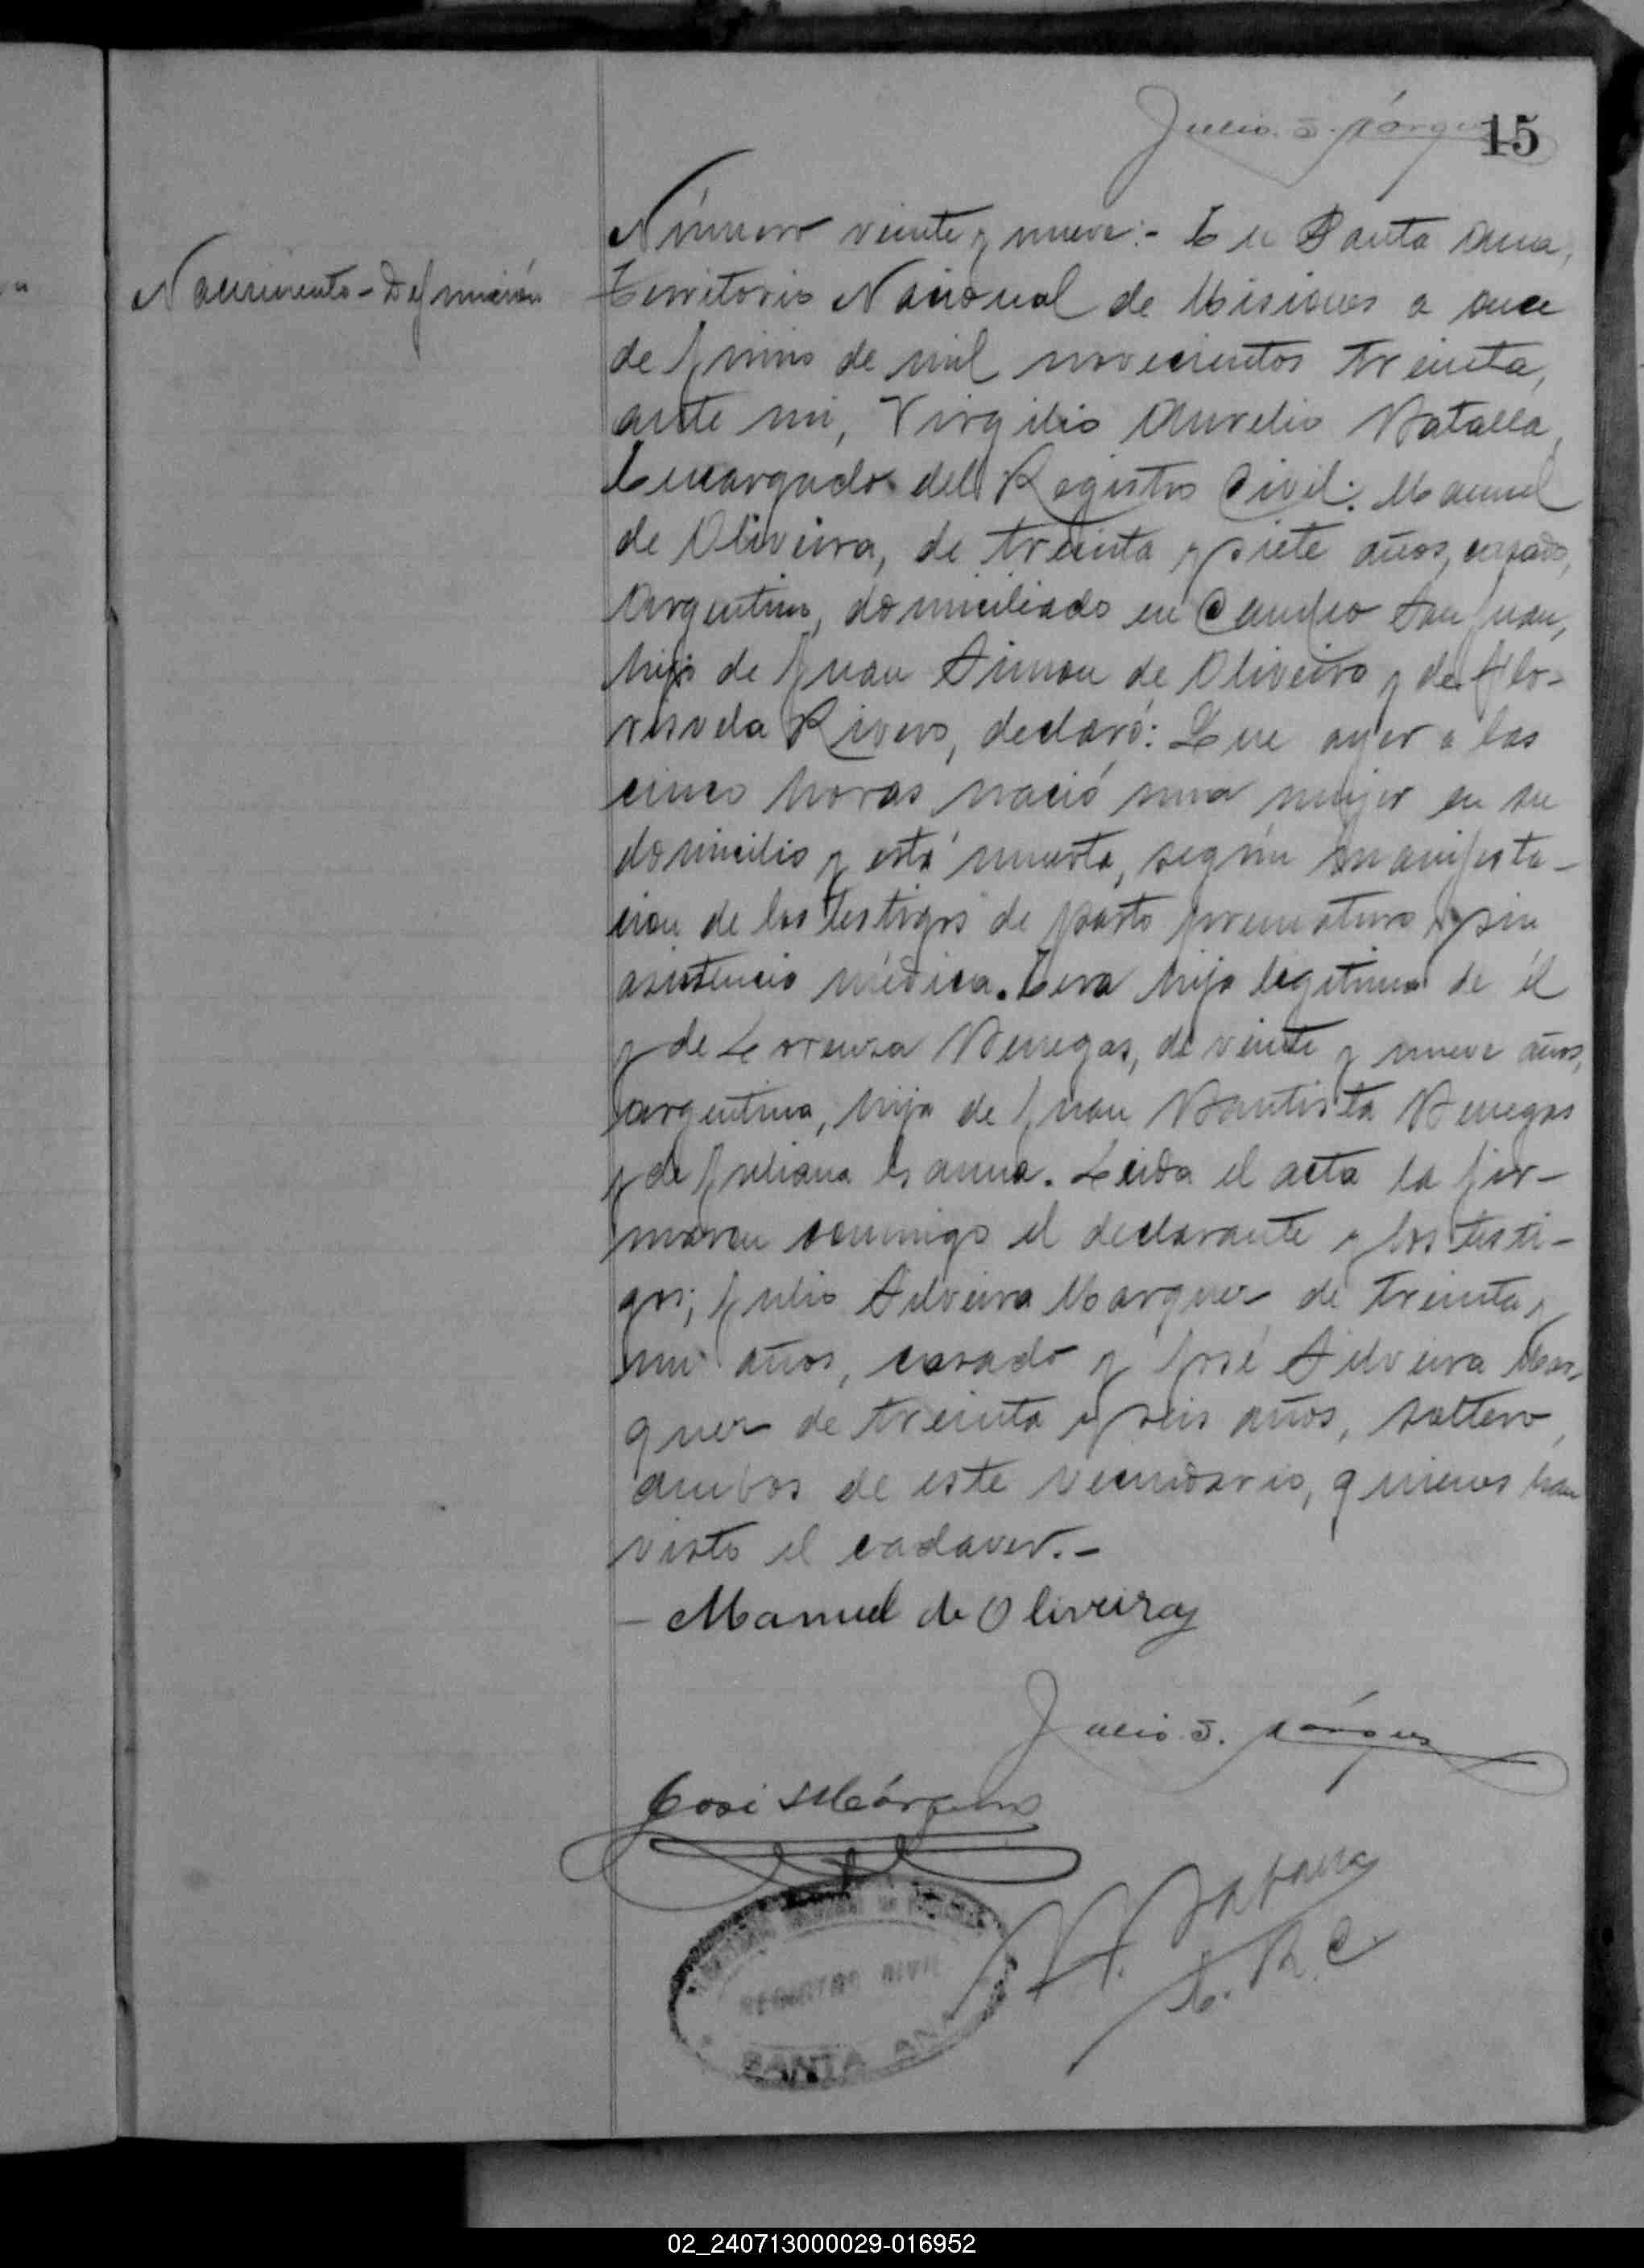 Julio S. Márquez 15
Número veinte y nueve:- En Santa Ana,
Nacimiento-Defunción
Territorio Nacional de Misiones a once
de Junio de mil novecientos treinta,
ante mi, Virgilio Aurelio Batalla,
Encargado del Registro Civil: Manuel
de Oliveira, de treinta y siete años, casado,
Argentino, domiciliado en Campo San Juan,
hijo de Juan Simon de Oliveira y de Flo-
risvela Rivero, declaró: Que ayer a las
cinco horas nació una mujer en su
domicilio y está muerta, según manifesta-
cion de los testigos de parto prematuro y sin
asistencia médica. Era hija legitima de él
y de Lorenza Benegas, de veinte y nueve años,
argentina, hija de Juan Bautista Benegas
y de Juliana. Leida el acta la fir-
maron conmigo el declarante y los testi-
gos; Julio Silveira Marquez de treinta y
un años, casado y José Silveira Mar-
quez de treinta y seis años, soltero,
ambos de este vecindario, quienes han
visto el cadaver.-
- Manuel de Oliveira
Julio S. Márquez
José S Márquez
V. A. Batalla
E. R. C.
REGISTRO CIVIL
SANTA ANA
02_240713000029-016952